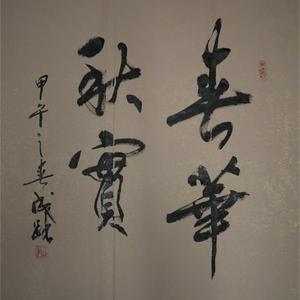 春華
秋實
甲午之春